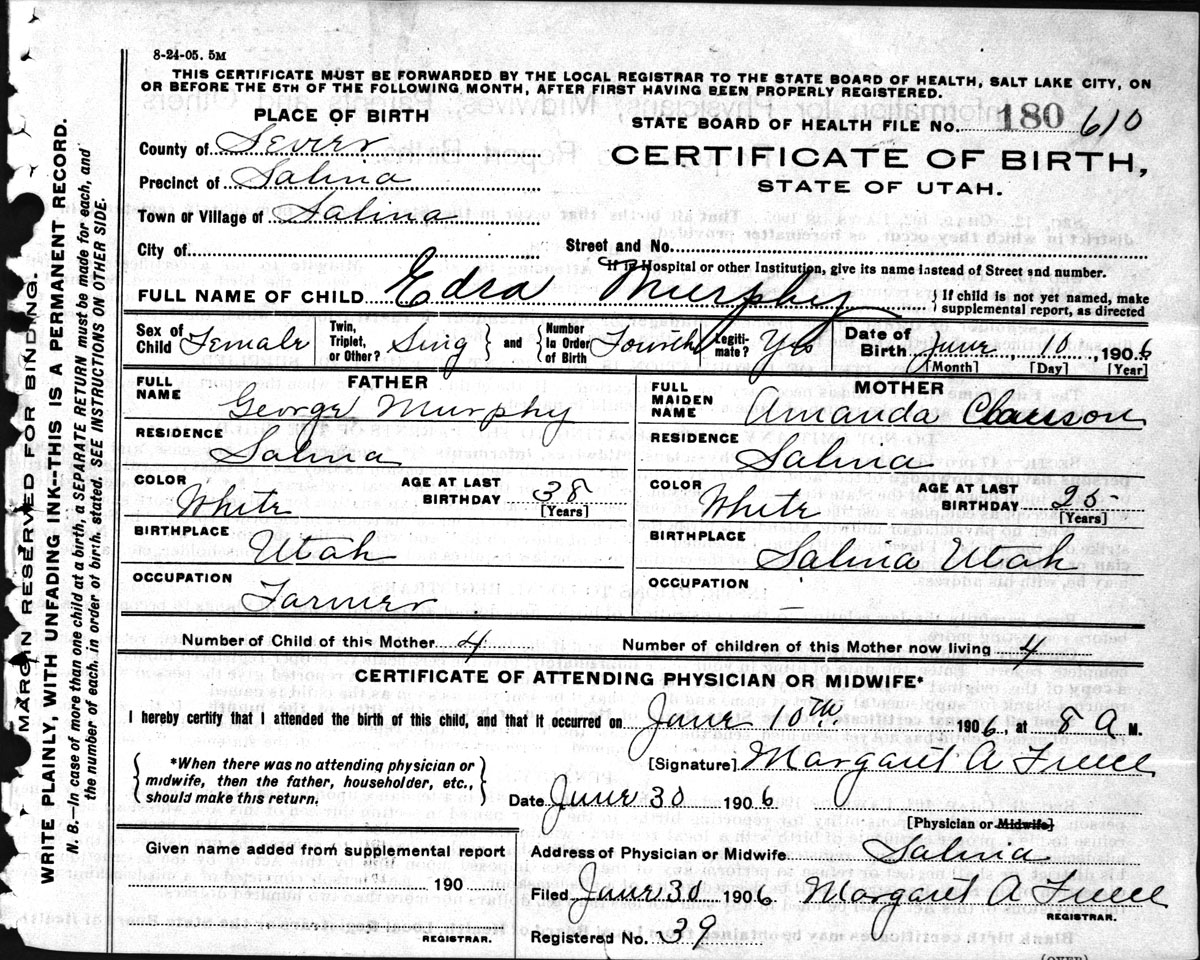 8-24-05. 5M
THIS CERTIFICATE MUST BE FORWARDED BY THE LOCAL REGISTRAR TO THE STATE BOARD OF HEALTH, SALT LAKE CITY, ON
OR BEFORE THE 5TH OF THE FOLLOWING MONTH, AFTER FIRST HAVING BEEN PROPERLY REGISTERED.
PLACE OF BIRTH
County of Sevier
Precinct of Salina
Town or Village of Salina
City of
STATE BOARD OF HEALTH FILE No. 180 610
CERTIFICATE OF BIRTH,
STATE OF UTAH.
Street and No.
If in Hospital or other Institution, give its name instead of Street and number.
FULL NAME OF CHILD Edra Murphy } If child is not yet named, make supplemental report, as directed
Sex of Child Female Twin, Triplet, or Other? Sing } and { Number In Order of Birth Fourth Legiti-mate? Yes Date of Birth June, 10, 1906
[Month] [Day] [Year]
FATHER
FULL NAME George Murphy
RESIDENCE Salina
COLOR White AGE AT LAST BIRTHDAY 38 [Years]
BIRTHPLACE Utah
OCCUPATION Farmer
MOTHER
FULL MAIDEN NAME Amanda
RESIDENCE Salina
COLOR White AGE AT LAST BIRTHDAY 25 [Years]
BIRTHPLACE Salina Utah
OCCUPATION –
Number of Child of this Mother 4 Number of children of this Mother now living 4
CERTIFICATE OF ATTENDING PHYSICIAN OR MIDWIFE*
I hereby certify that I attended the birth of this child, and that it occurred on June 10th, 1906, at 8 A M.
{ *When there was no attending physician or midwife, then the father, householder, etc., should make this return. }
[Signature] Margaret A Freece
Date June 30 1906
[Physician or Midwife]
Address of Physician or Midwife Salina
Given name added from supplemental report
190
REGISTRAR.
Filed June 30 1906 Margaret A Freece
REGISTRAR.
Registered No. 39
(OVER)
MARGIN RESERVED FOR BINDING.
WRITE PLAINLY, WITH UNFADING INK--THIS IS A PERMANENT RECORD.
N. B.—In case of more than one child at a birth, a SEPARATE RETURN must be made for each, and
the number of each, in order of birth, stated. SEE INSTRUCTIONS ON OTHER SIDE.